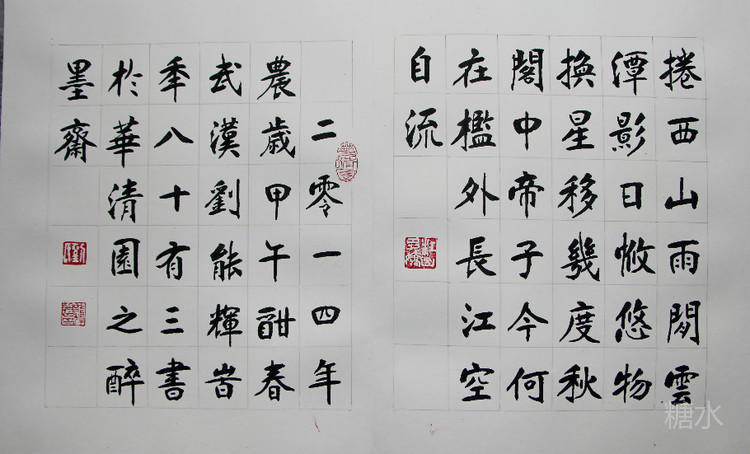 捲西山雨閒雲
潭影日悠悠物
換星移幾度秋
閣中帝子今何
在檻外長江空
自流
二零一四年
農歲甲午酣春
武漢劉能輝時
年八十有三書
於華清園之醉
墨齋
糖水